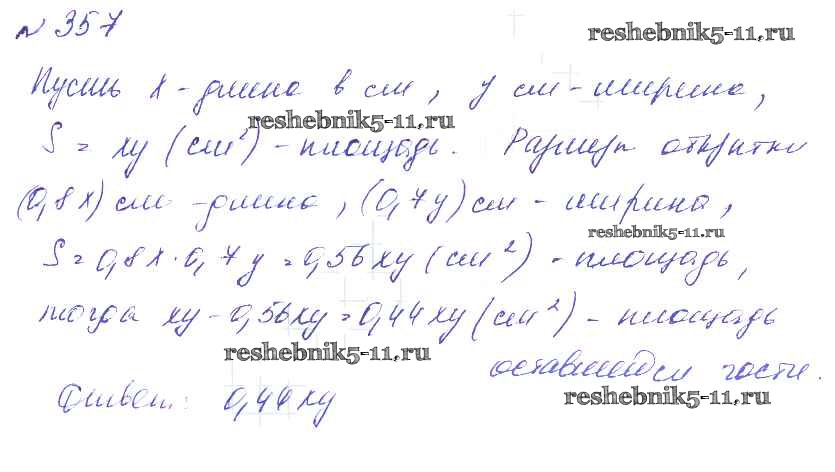 № 357
reshebnik5-11.ru
Пусть x - длина в см, y см - ширина,
reshebnik5-11.ru
S = xy (см²) - площадь. Размер открытки
(0,8x) см - длина, (0,7y) см - ширина,
reshebnik5-11.ru
S = 0,8x · 0,7y = 0,56xy (см²) - площадь,
тогда xy - 0,56xy = 0,44xy (см²) - площадь
reshebnik5-11.ru
оставшейся части.
reshebnik5-11.ru
Ответ: 0,44xy